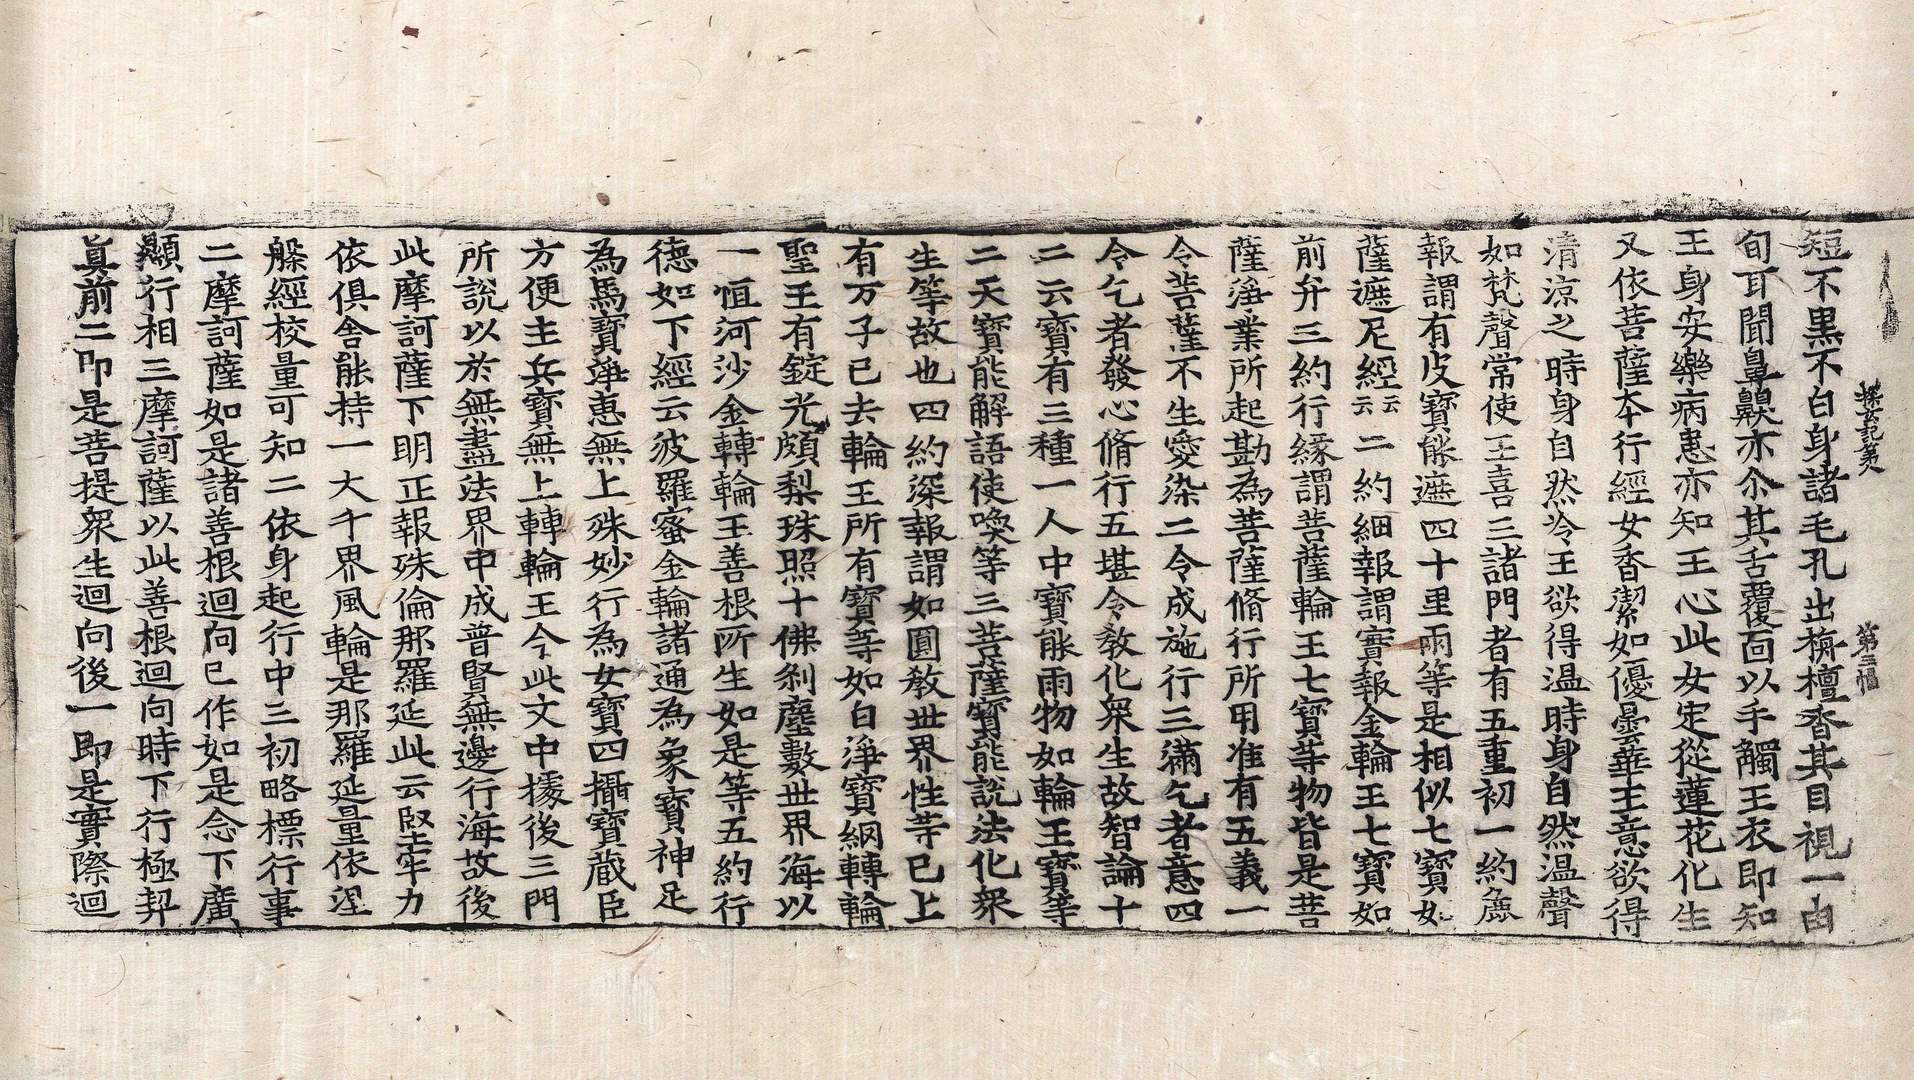 探玄記第八
第三幅
短不黒不白身諸毛孔出栴檀香其目視一由
旬耳聞鼻齅亦尒其舌覆面以手觸王衣即知
王身安樂病患亦知王心此女定從蓮花化生
又依菩薩本行經女香潔如優曇華王意欲得
清涼之時身自然冷王欲得温時身自然温聲
如梵聲常使王喜三諸門者有五重初一約麁
報謂有皮寶能遮四十里雨等是相似七寶如
薩遮尼經云云二約細報謂寶報金輪王七寶如
前弁三約行緣謂菩薩輪王七寶等物皆是菩
薩淨業所起勘為菩薩脩行所用准有五義一
令菩薩不生愛染二令成施行三滿乞者意四
令乞者發心脩行五堪令教化衆生故智論十
二云寶有三種一人中寶能雨物如輪王寶等
二天寶能解語使喚等三菩薩寶能說法化衆
生等故也四約深報謂如圓教世界性等已上
有万子已去輪王所有寶等如白淨寶網轉輪
聖王有錠光頗梨珠照十佛刹塵數世界海以
一恒河沙金轉輪王善根所生如是等五約行
德如下經云彼羅蜜金輪諸通為象寶神足
為馬寶淨恵無上殊妙行為女寶四攝寶藏臣
方便主兵寶無上轉輪王今此文中據後三門
所說以於無盡法界中成普賢無邊行海故後
此摩訶薩下明正報殊倫那羅延此云堅牢力
依俱舍能持一大千界風輪是那羅延量依涅
槃經校量可知二依身起行中三初略標行事
二摩訶薩如是諸善根迴向已作如是念下廣
顯行相三摩訶薩以此善根迴向時下行極契
真前二即是菩提衆生迴向後一即是實際迴